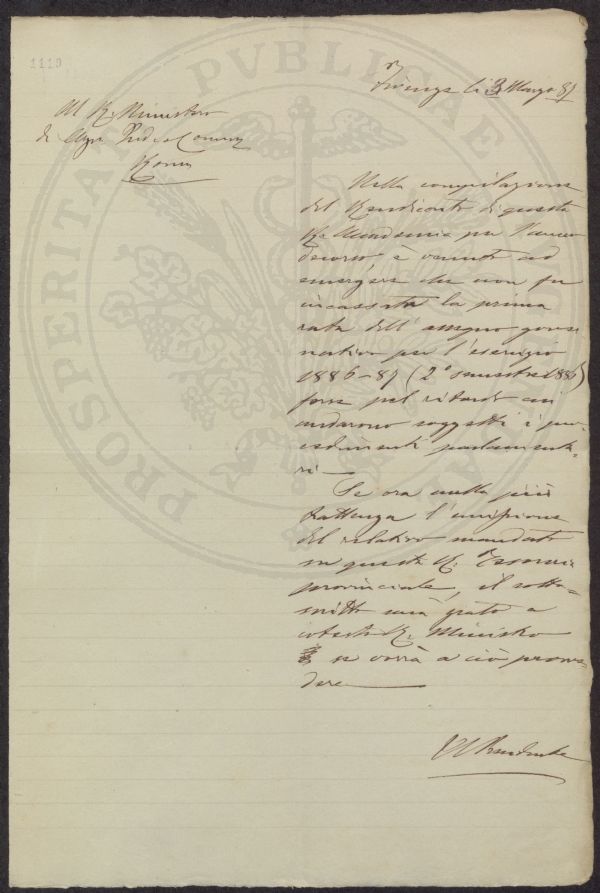 1119
Firenze li 3 Marzo 87
Al R. Ministero
di Agr. Ind. e Comm.
Roma
Nella compilazione
del Rendiconto di questa
R. Accademia per l'anno
decorso, è venuto ad
emergere che non fu
incassata la prima
rata dell' assegno gover
nativo per l'esercizio
1886-87 (2° semestre 1886)
forse pel ritardo cui
andarono soggetti i prov
vedimenti parlamenta-
ri —
Se ora nulla più
trattenga l'emissione
del relativo mandato
su questa R. Tesoreria
provinciale, il sotto-
scritto sarà grato a
cotesto R. Ministero
se vorrà a ciò provve-
dere —
Il Presidente
PROSPERITATI PVBLICAE